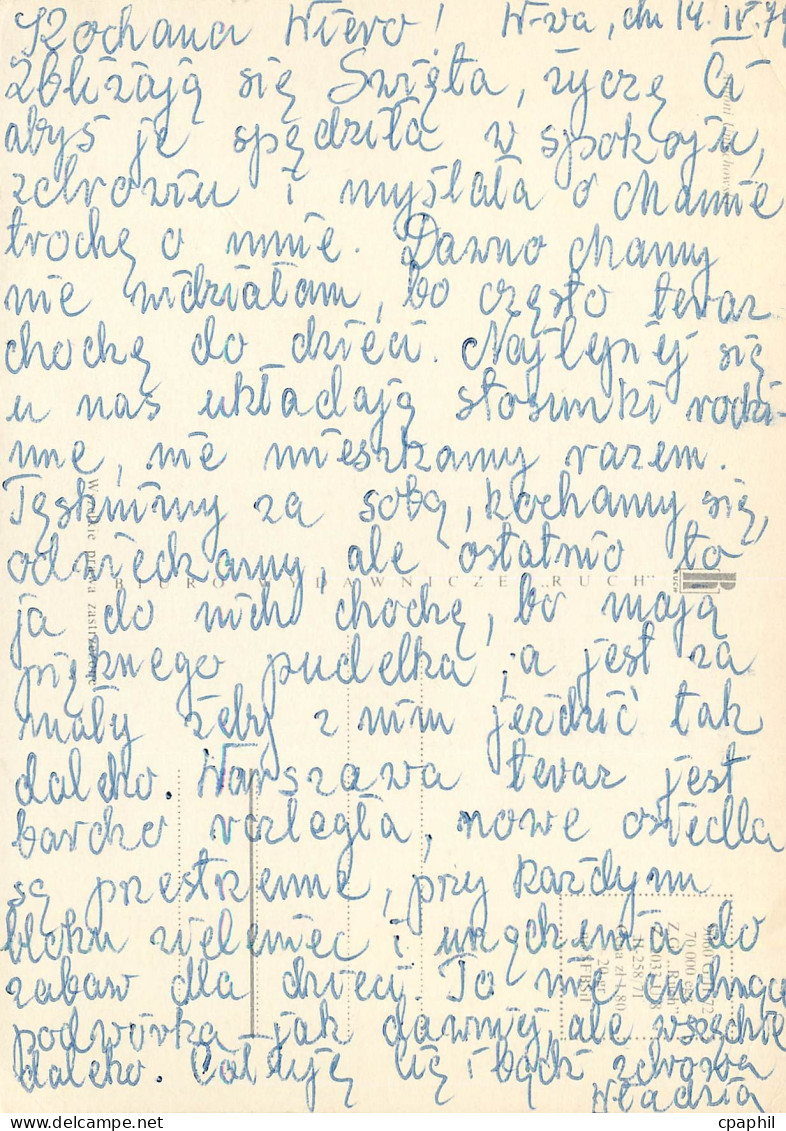 Kochana Wiero! W-wa, dn 14. IV. 74
Zbliżają się Święta, życzę Ci
abyś je spędziła w spokoju,
zdrowiu i myślała o Mamie
trochę o mnie. Dawno Mamy
nie widziałam, bo często teraz
chodzę do dzieci. Najlepiej się
u nas układają stosunki rodzi-
nne, nie mieszkamy razem.
Tęsknimy za sobą, kochamy się,
odwiedzamy, ale ostatnio to
BIURO WYDAWNICZE „RUCH”
RUCH
ja do nich chodzę, bo mają
pięknego pudelka, a jest za
mały żeby z nim jeździć tak
daleko. Warszawa teraz jest
bardzo rozległa, nowe osiedla
są przestrzenne, przy każdym
bloku zieleniec i urządzenia do
zabaw dla dzieci. To nie cuchnące
podwórka jak dawniej, ale wszędzie
daleko. Całuję Cię i bądź zdrowa
Władzia
Wszelkie prawa zastrzeżone